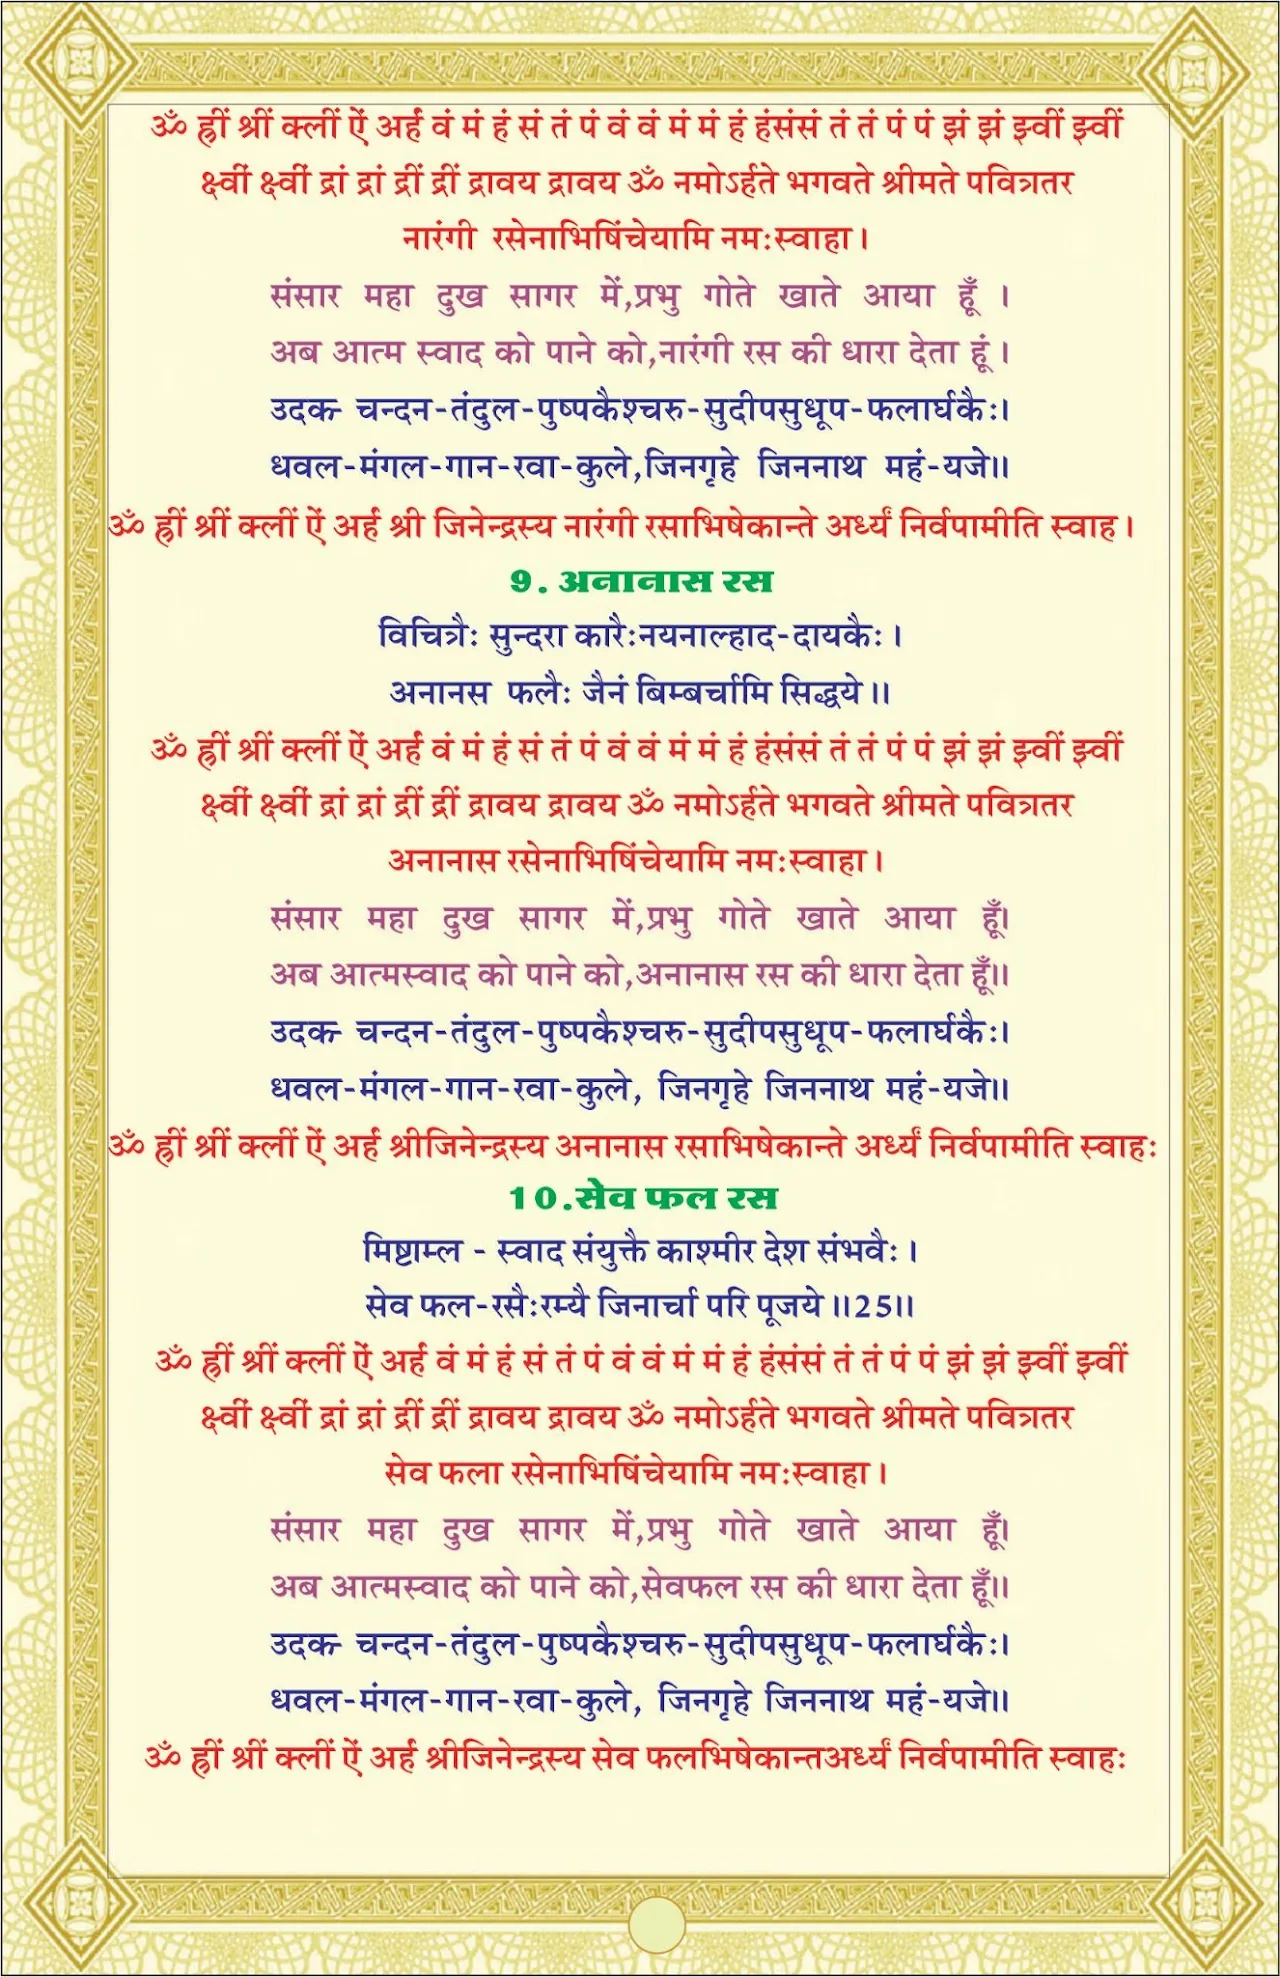 ॐ ह्रीं श्रीं क्लीं ऐं अर्हं वं मं हं सं तं पं वं वं मं मं हं हंसंसं तं तं पं पं झं झं झ्वीं झ्वीं
क्ष्वीं क्ष्वीं द्रां द्रां द्रीं द्रीं द्रावय द्रावय ॐ नमोऽर्हते भगवते श्रीमते पवित्रतर
नारंगी रसेनाभिषिंचेयामि नमःस्वाहा।
संसार महा दुख सागर में,प्रभु गोते खाते आया हूँ ।
अब आत्म स्वाद को पाने को,नारंगी रस की धारा देता हूं ।
उदक चन्दन-तंदुल-पुष्पकैश्चरु-सुदीपसुधूप-फलार्घकैः।
धवल-मंगल-गान-रवा-कुले,जिनगृहे जिननाथ महं-यजे।।
ॐ ह्रीं श्रीं क्लीं ऐं अर्हं श्री जिनेन्द्रस्य नारंगी रसाभिषेकान्ते अर्ध्यं निर्वपामीति स्वाह।
9. अनानास रस
विचित्रैः सुन्दरा कारैःनयनाल्हाद-दायकैः।
अनानस फलैः जैनं बिम्बर्चामि सिद्धये।।
ॐ ह्रीं श्रीं क्लीं ऐं अर्हं वं मं हं सं तं पं वं वं मं मं हं हंसंसं तं तं पं पं झं झं झ्वीं झ्वीं
क्ष्वीं क्ष्वीं द्रां द्रां द्रीं द्रीं द्रावय द्रावय ॐ नमोऽर्हते भगवते श्रीमते पवित्रतर
अनानास रसेनाभिषिंचेयामि नमःस्वाहा।
संसार महा दुख सागर में,प्रभु गोते खाते आया हूँ।
अब आत्मस्वाद को पाने को,अनानास रस की धारा देता हूँ।।
उदक चन्दन-तंदुल-पुष्पकैश्चरु-सुदीपसुधूप-फलार्घकैः।
धवल-मंगल-गान-रवा-कुले, जिनगृहे जिननाथ महं-यजे।।
ॐ ह्रीं श्रीं क्लीं ऐं अर्हं श्रीजिनेन्द्रस्य अनानास रसाभिषेकान्ते अर्ध्यं निर्वपामीति स्वाहः
10.सेव फल रस
मिष्टाम्ल - स्वाद संयुक्तै काश्मीर देश संभवैः।
सेव फल-रसैःरम्यै जिनार्चा परि पूजये।।25।।
ॐ ह्रीं श्रीं क्लीं ऐं अर्हं वं मं हं सं तं पं वं वं मं मं हं हंसंसं तं तं पं पं झं झं झ्वीं झ्वीं
क्ष्वीं क्ष्वीं द्रां द्रां द्रीं द्रीं द्रावय द्रावय ॐ नमोऽर्हते भगवते श्रीमते पवित्रतर
सेव फला रसेनाभिषिंचेयामि नमःस्वाहा।
संसार महा दुख सागर में,प्रभु गोते खाते आया हूँ।
अब आत्मस्वाद को पाने को,सेवफल रस की धारा देता हूँ।।
उदक चन्दन-तंदुल-पुष्पकैश्चरु-सुदीपसुधूप-फलार्घकैः।
धवल-मंगल-गान-रवा-कुले, जिनगृहे जिननाथ महं-यजे।।
ॐ ह्रीं श्रीं क्लीं ऐं अर्हं श्रीजिनेन्द्रस्य सेव फलभिषेकान्तअर्ध्यं निर्वपामीति स्वाहः